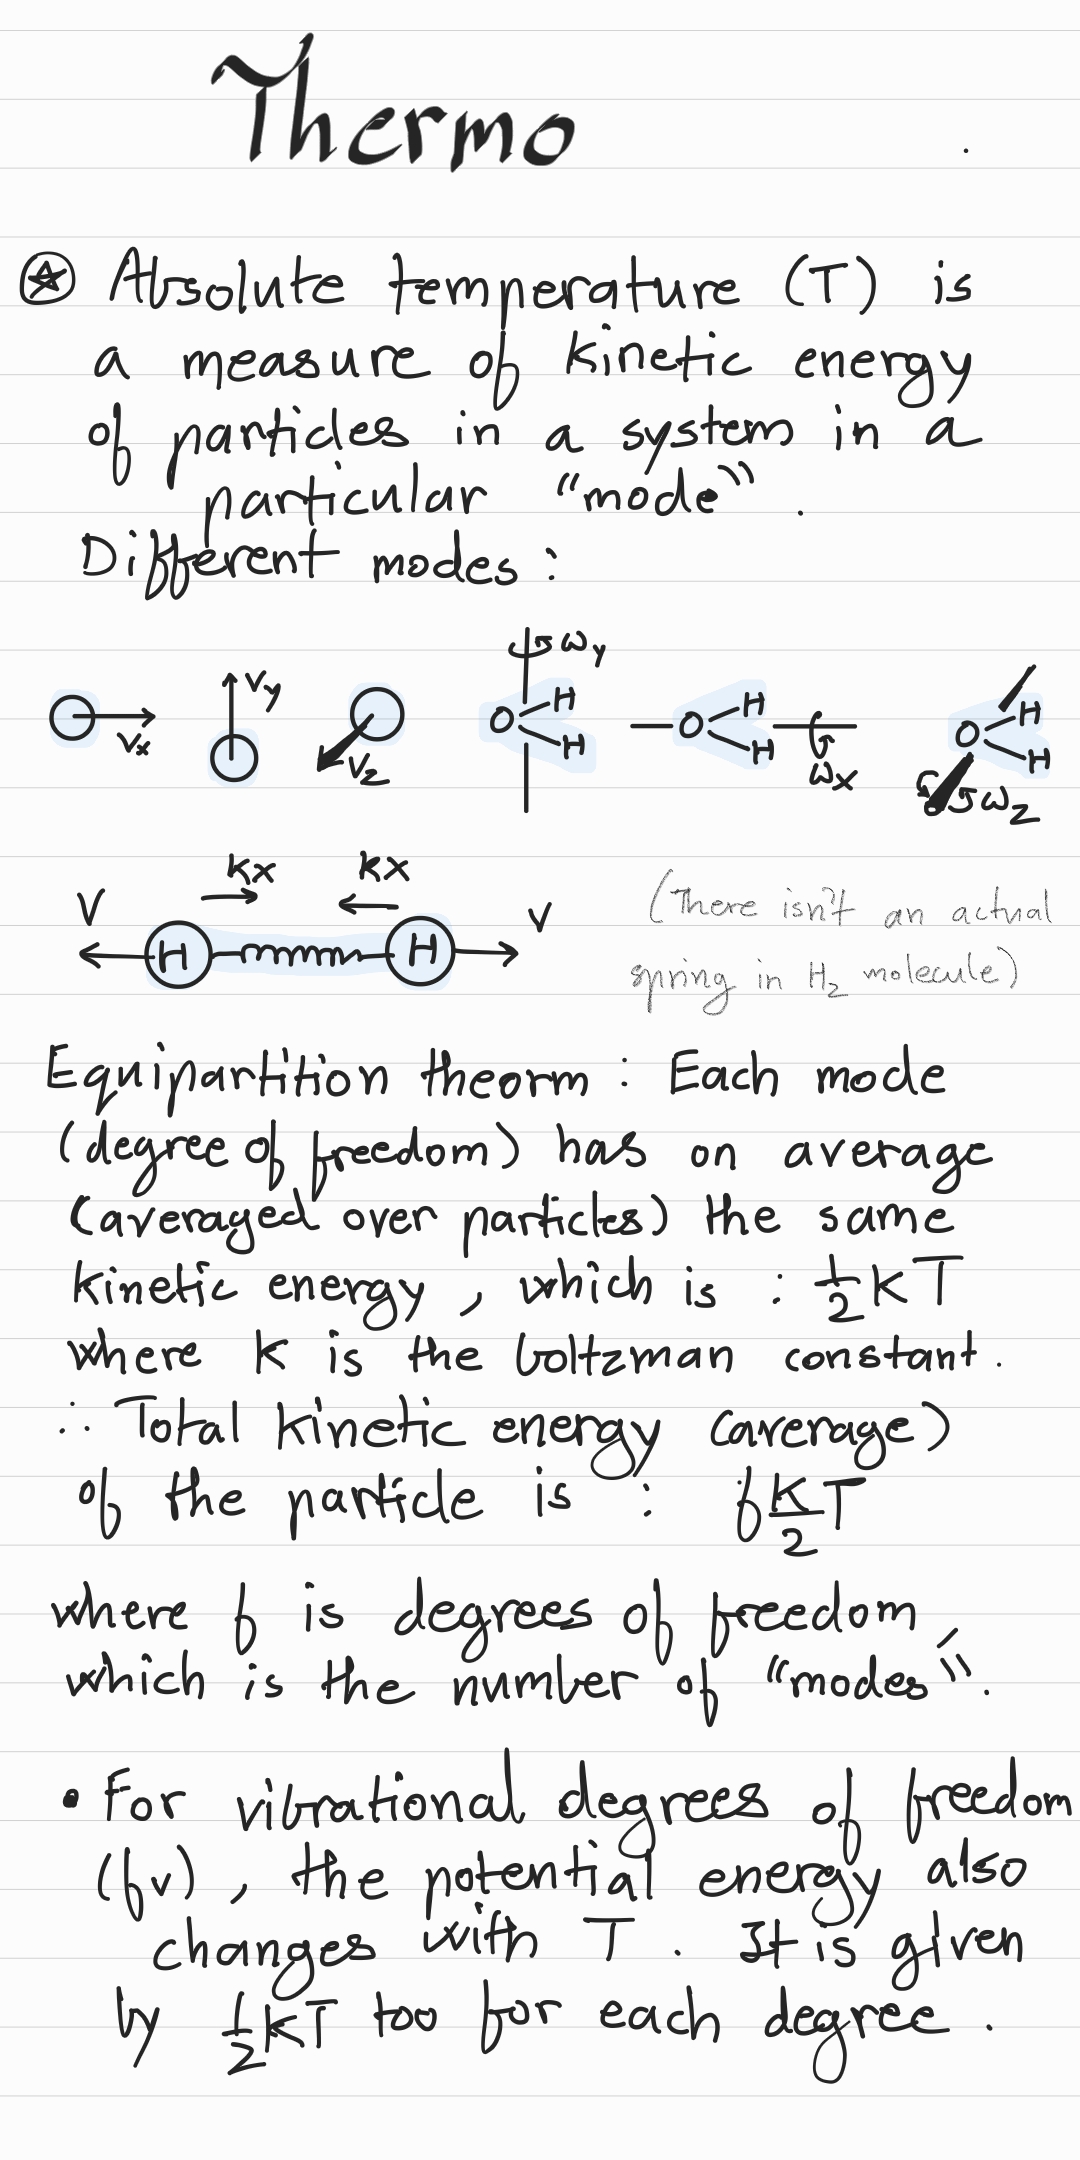 Thermo
Absolute temperature (T) is
a measure of kinetic energy
of particles in a system in a
particular "mode".
Different modes:
ωy
Vx
Vy
Vz
O H H
O H H
ωx
O H H
ωz
kx kx
V H H V
(There isn't an actual
spring in H₂ molecule)
Equipartition theorm : Each mode
(degree of freedom) has on average
(averaged over particles) the same
kinetic energy, which is : ½kT
where k is the boltzman constant.
∴ Total kinetic energy (average)
of the particle is : f k/2 T
where f is degrees of freedom
which is the number of "modes".
• For vibrational degrees of freedom
(fv), the potential energy also
changes with T. It is given
by ½kT too for each degree.